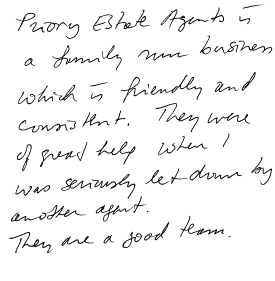 Priory Estate Agents is
a family run business
which is friendly and
consistent. They were
of great help when I
was seriously let down by
another agent.
They are a good team.